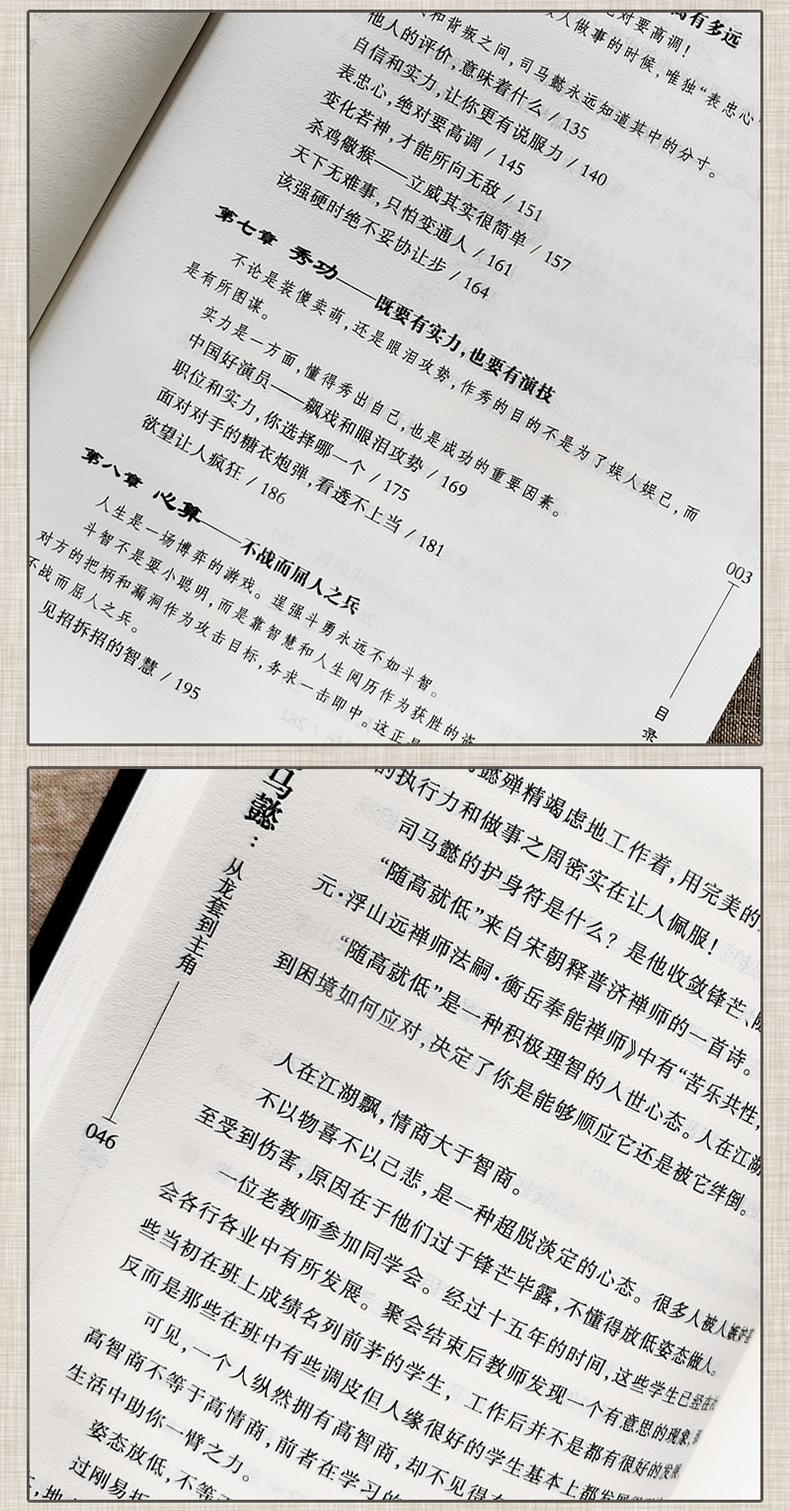 有多远
人做事的时候，唯独“表忠心”
绝对要高调！
和背叛之间，司马懿永远知道其中的分寸。
他人的评价，意味着什么 / 135
自信和实力，让你更有说服力 / 140
表忠心，绝对要高调 / 145
变化若神，才能所向无敌 / 151
杀鸡儆猴——立威其实很简单 / 157
天下无难事，只怕变通人 / 161
该强硬时绝不妥协让步 / 164
第七章 秀功——既要有实力，也要有演技
不论是装傻卖萌，还是眼泪攻势，作秀的目的不是为了娱人娱己，而
是有所图谋。
实力是一方面，懂得秀出自己，也是成功的重要因素。
中国好演员——飙戏和眼泪攻势 / 169
职位和实力，你选择哪一个 / 175
面对对手的糖衣炮弹，看透不上当 / 181
欲望让人疯狂 / 186
第八章 心算——不战而屈人之兵
人生是一场博弈的游戏。逞强斗勇永远不如斗智。
斗智不是耍小聪明，而是靠智慧和人生阅历作为获胜的
对方的把柄和漏洞作为攻击目标，务求一击即中。这正是
不战而屈人之兵。
见招拆招的智慧 / 195
003
目录
马懿：从龙套到主角
046
懿殚精竭虑地工作着，用完美的
的执行力和做事之周密实在让人佩服！
司马懿的护身符是什么？是他收敛锋芒、随
“随高就低”来自宋朝释普济禅师的一首诗。
元·浮山远禅师法嗣·衡岳奉能禅师》中有“苦乐共性，
“随高就低”是一种积极理智的人世心态。人在江湖
到困境如何应对，决定了你是能够顺应它还是被它绊倒。
人在江湖飘，情商大于智商。
不以物喜不以己悲，是一种超脱淡定的心态。很多人被人嫉妒甚
至受到伤害，原因在于他们过于锋芒毕露，不懂得放低姿态做人。
一位老教师参加同学会。经过十五年的时间，这些学生已经在社
会各行各业中有所发展。聚会结束后教师发现一个有意思的现象，那
些当初在班上成绩名列前茅的学生，工作后并不是都有很好的发展
反而是那些在班中有些调皮但人缘很好的学生基本上都发展得
可见，一个人纵然拥有高智商，却不见得有
高智商不等于高情商，前者在学习的
生活中助你一臂之力。
姿态放低，不等于
过刚易折
，地